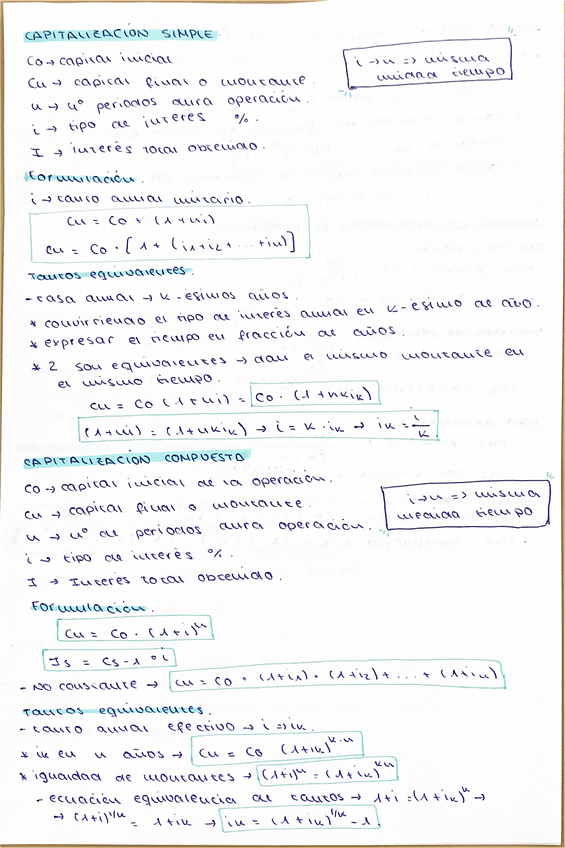 CAPITALIZACIÓN SIMPLE
Co → capital inicial
i → n => misma
unidad tiempo
Cn → capital final o montante.
n → nº periodos dura operación.
i → tipo de interés %.
I → interés total obtenido.
Formulación.
i → tanto anual unitario.
Cn = Co · (1+ni)
Cn = Co · [1 + (i1+i2+...+in)]
Tantos equivalentes.
- tasa anual → k-ésimos años.
* convirtiendo el tipo de interés anual en k-ésimo de año.
* expresar el tiempo en fracción de años.
* 2 son equivalentes → dan el mismo montante en
el mismo tiempo.
Cn = Co (1+ni) = Co · (1+nkik)
(1+ni) = (1+nkik) → i = k·ik → ik = i/k.
CAPITALIZACIÓN COMPUESTA
Co → capital inicial de la operación.
i → n => misma
medida tiempo
Cn → capital final o montante.
n → nº de periodos dura operación.
i → tipo de interés %.
I → Interés total obtenido.
Formulación.
Cn = Co · (1+i)^n
Is = Cs-1 · i
- No constante → Cn = Co · (1+i1) · (1+i2) + ... + (1+in)
Tantos equivalentes.
- tanto anual efectivo → i => ik.
* ik en n años → Cn = Co (1+ik)^k·n
* igualdad de montantes → (1+i)^n = (1+ik)^kn
- ecuación equivalencia de tantos → 1+i = (1+ik)^k →
→ (1+i)^1/k = 1+ik → ik = (1+ik)^1/k - 1.